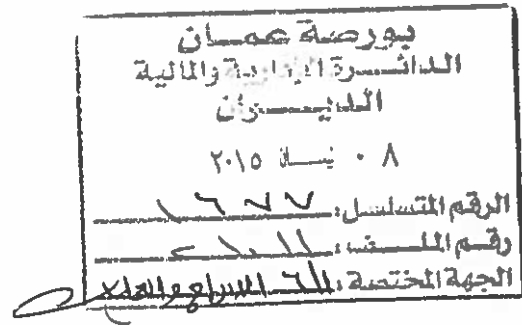 بورصة عمان
الدائرة الإدارية والمالية
الديوان
٠٨ نيسان ٢٠١٥
الرقم المتسلسل: ١٦٧٧
رقم الملف:
الجهة المختصة: